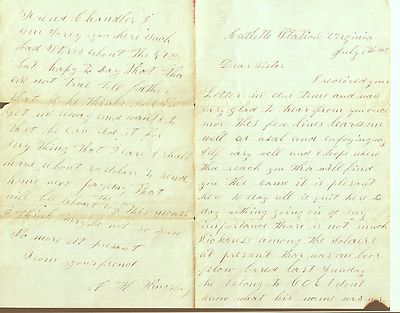 Catletts Station Virginia
July
Dear Sister
I received your
Letter in due time and was
very glad to hear from you once
more this few lines leaves me
well as usal and enjoying my
self very well and I hope when
tha reach you tha will find
you the same it is plesent
here to day all is quiet here to
day nothing going on of any
importance thare is not much
Sickness among the Soldiers
at present thar was one
felow buried last Sunday
he belong to CO E I dont
know what his name was
Friend Chandler I
am Sorry you here Such
bad Stores about the
but hapy to Say that tha
are not true tell father
that if he thinks he can
get me away and wants to
that he can use it for
any thing that I care I shall
have about dolars to Send
home next payday that
will be about the of this month
I think maybe not so soon
No more at present
from your friend
Kingsbury